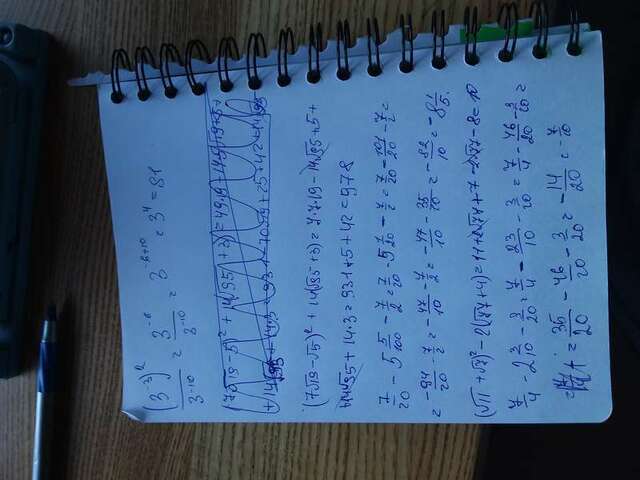 (3⁻³)² / 3⁻¹⁰ = 3⁻⁶ / 3⁻¹⁰ = 3⁻⁶⁺¹⁰ = 3⁴ = 81
(7√19-√5)² + 14(√95+3) = 7·7·19 - 14√95 + 5 +
14√95 + 14·3 = 931 + 5 + 42 = 978
7/20 - 5 5/100 - 7/2 = 7/20 - 5 1/20 - 7/2 = 7/20 - 101/20 - 7/2 =
= -94/20 - 7/2 = -47/10 - 7/2 = -47/10 - 35/10 = -82/10 = -8 1/5.
(√11 + √7)² - 2(√77+4) = 11 + 2√77 + 7 - 2√77 - 8 = 10
7/4 - 2 3/10 - 3/20 = 7/4 - 23/10 - 3/20 = 7/4 - 46/20 - 3/20 =
= 35/20 - 46/20 - 3/20 = -14/20 = -7/10